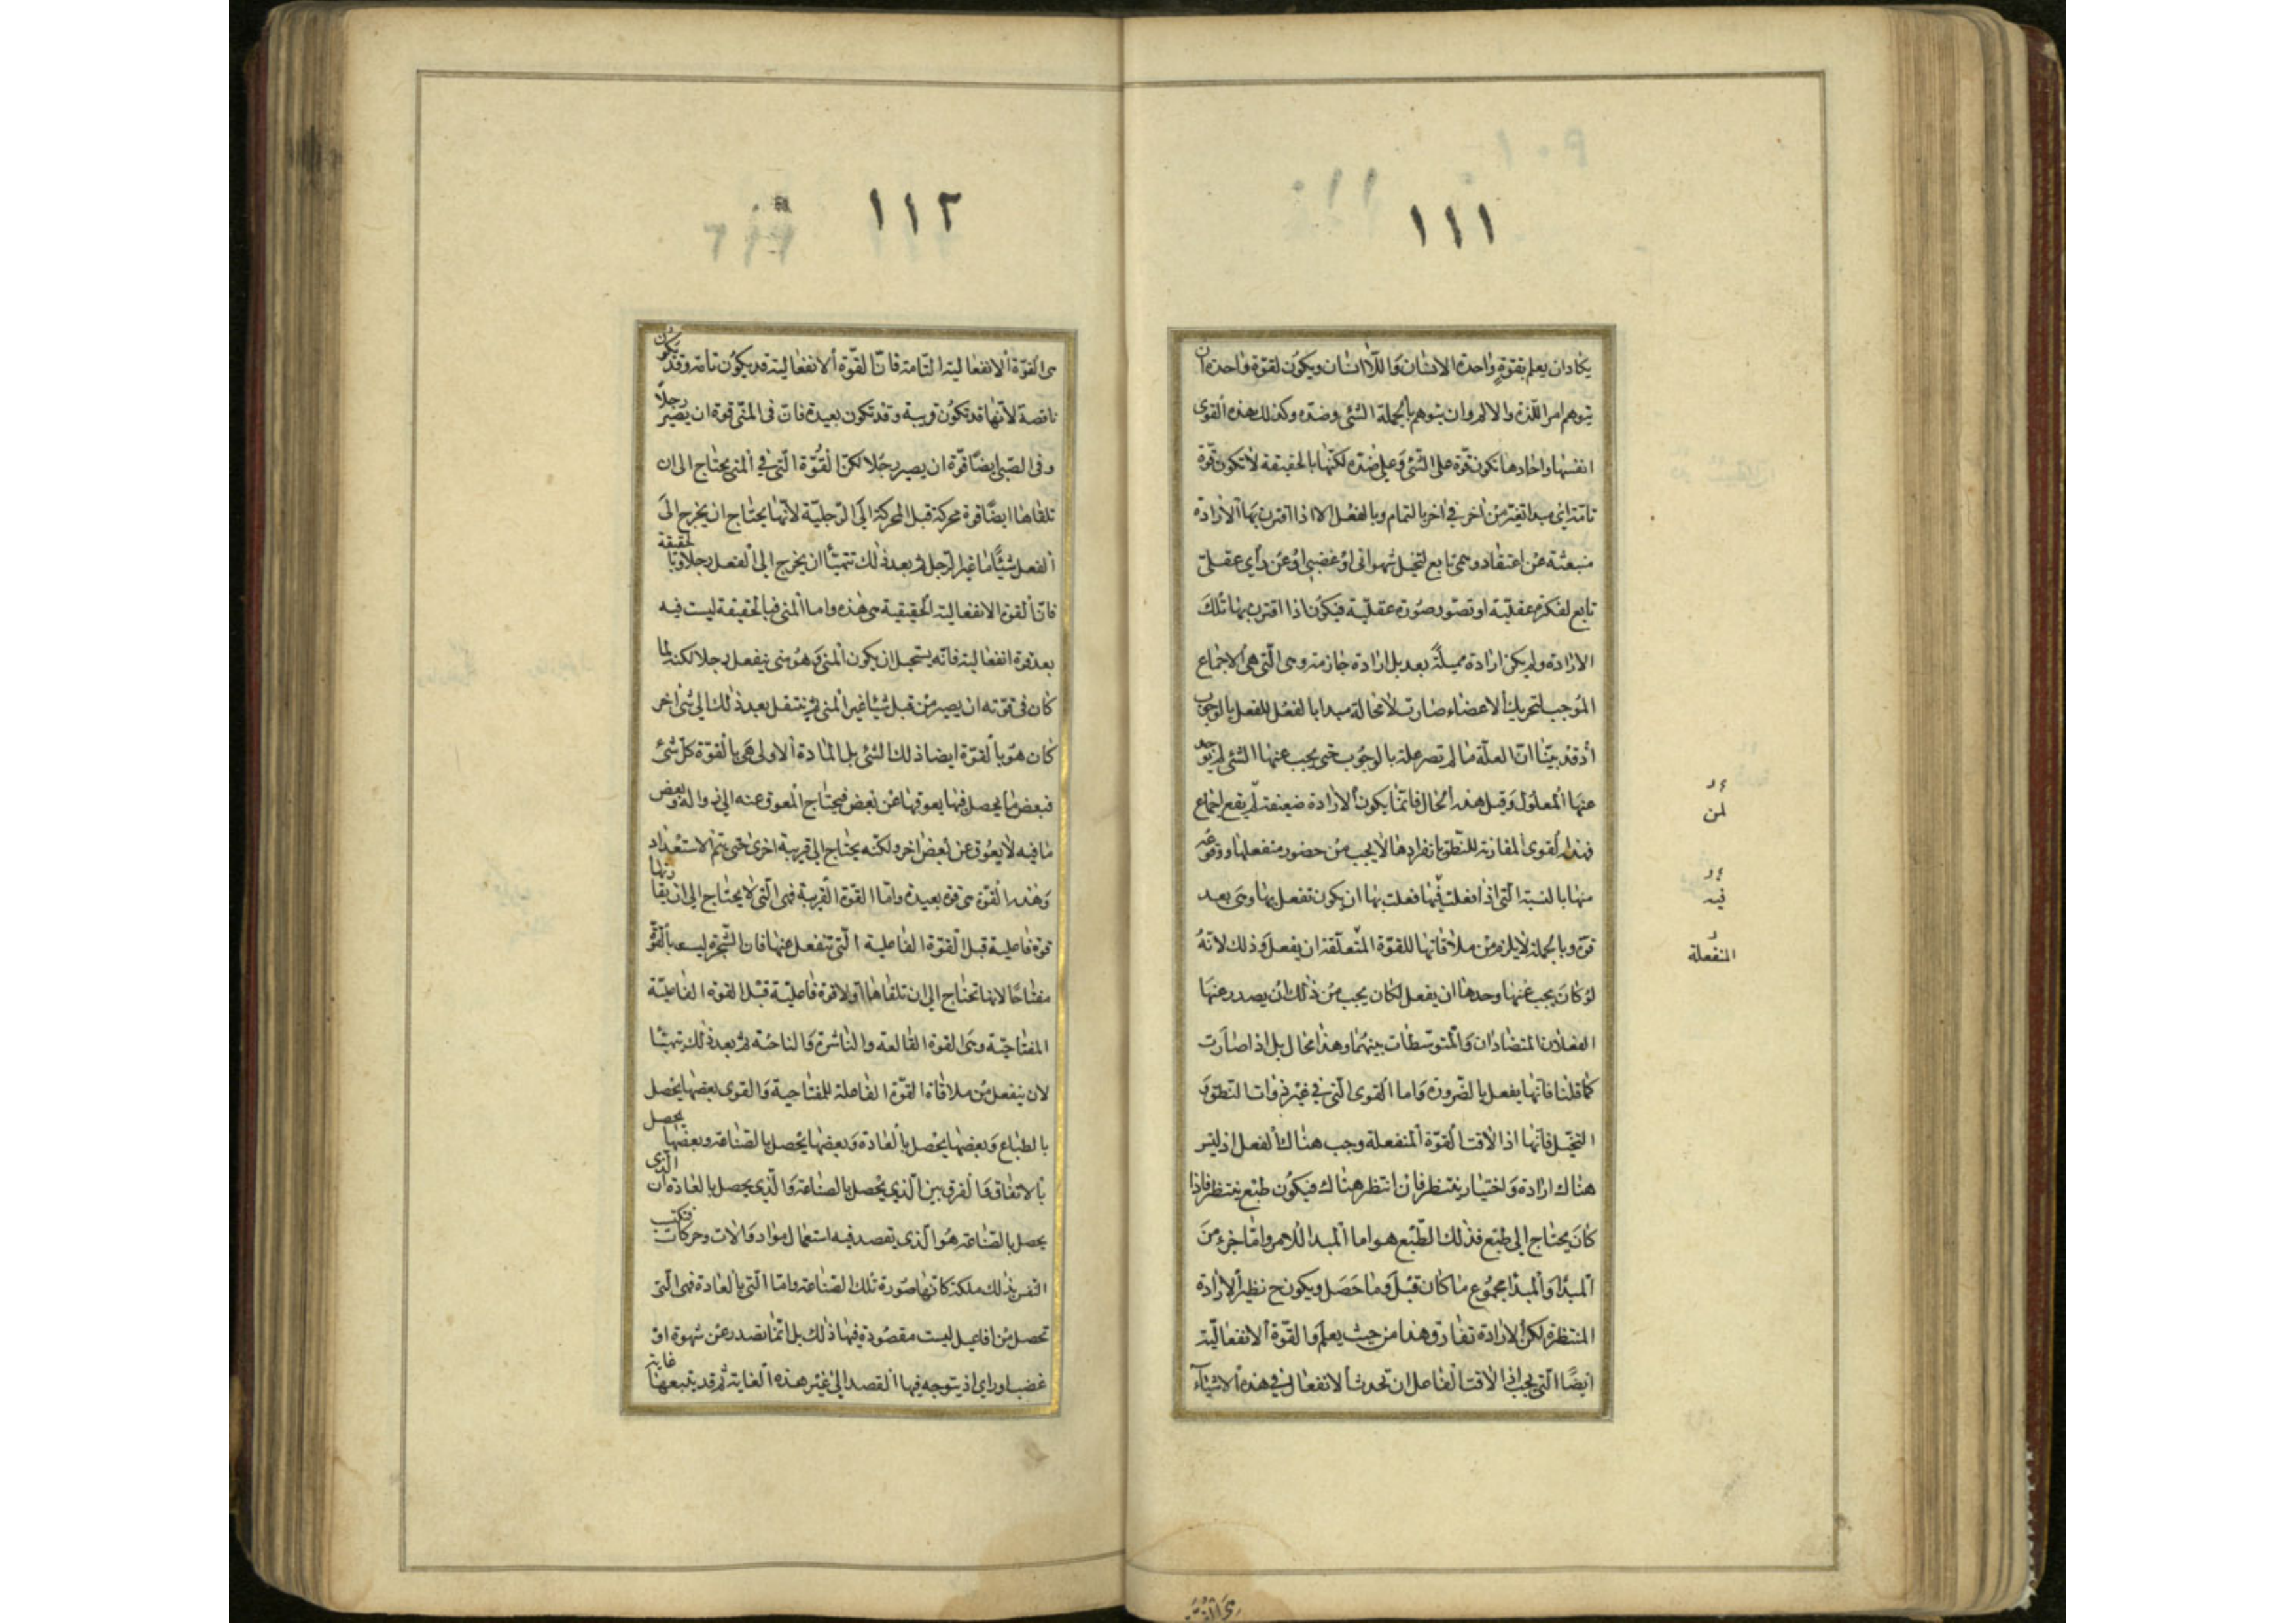 ١١١
يكاد ان يعلم بقوّةٍ واحدة الانسان وَاللّاانسان ويكوُن لقوّة واحدة ان
يتوهم امر اللّذة والالم وان يتوهم بالجملة الشئ وضدّه وكذلك هذه القوى
انفسها واحادها تكون قوّة على الشّئ وَعلى ضدّه لكنّها بالحقيقة لا تكون قوّة
تامّة اى مبدا تغيّر من اخر فى اخر بالتمام وبالفعل الا اذا اقترن بها الارادة
منبعثة عن اعتقاد وهمى تابع لتخيل شهوانى اوْ غضبى اوْ عن رأى عقلىّ
تابع لفكرة عقليّة او تصوّر صُورة عقليّة فيكوُن اذا اقترن بها تلكَ
الارادة ولم يكن ارادة مميلةً بعد بل ارادة جازمة وهى الّتى هى الاجماع
الموجب لتحريك الاعضاء صارت لا محالة مبدا بالفعل للفعل بالوجوب
اذ قد بيّنا انّ العلّة ما لم تصر علة بالوجوب حتى يجب عنها الشئ لم يوجد
عنها المعلول وَقبل هذه الحال فانّما يكون الارادة ضعيفة لم يقع اجماع
فهذه القوى المقارنة للنّطق بانفرادها لا يجب من حضور منفعلها ووقوعه
منها بالنسبة الّتى اذا فعلت فيها فعلت بها ان يكون تفعل بها وهى بعد
قوّة وبالجملة لا يلزم من ملاقاتها للقوّة المتعلّقة ان يفعل وَذلك لانّهُ
لوْ كانَ يجب عنها وحدها ان يفعل لكان يجب من ذلك ان يصدر عنها
الفعلان المتضادّان وَالمتوسّطات بينهُما وهذا محال بل اذا صارت
كما قلنا فانّها يفعل بالضّرورة وَاما القوى الّتى فى غير ذوات النّطق وَ
التخيّل فانّها اذا لاقت القوّة المنفعلة وجب هناك الفعل اذ ليس
هناك ارادة وَاختيار ينتظر فان انتظر هناك فيكوُن طبْع ينتظر فاذا
كانَ يحتاج الى طبْع فذلك الطّبْع هو اما المبدا للامر وامّا جزء منَ
المبدا وَالمبدا مجموُع ما كان قبْل وَما حَصَل ويكون ح نظير الارادة
المنتظرة لكن الارادة تفارق هذا من حيث يعلم وَالقوّة الانفعاليّة
ايضًا الّتى يجب اذا لاقت الفاعل ان تحدث الانفعال فى هذه الاشياء
لمن
فيه
المنفعلة
١١٢
هى القوّة الانفعالية التّامة فانّ القوّة الانفعالية قد يكوُن تامّة وقد يكون
ناقصة لانّها قد تكوُن قريبة وقد تكون بعيدة فان فى المنىّ قوة ان يصير رجلًا
وفى الصّبى ايضًا قوّة ان يصير رجُلا لكنّ القُوّة الّتى فى المنى يحتاج الى ان
تلقاها ايضًا قوة محركة قبل المحركة الى الرّجليّة لانّها يحتاج ان يخرج الىَ
الفعل شيئًا مّا غير الرّجل ثم بعد ذلك تتهيّأ ان يخرج الى الفعل رجلا وبالحقيقة
فانّ القوة الانفعالية الحقيقية هى هذه واما المنى فبالحقيقة ليست فيه
بعد قوة انفعالية فانّه يستحيل ان يكون المنى وَهوُ منى ينفعل رجلا لكنه لما
كان فى قوّته ان يصير منْ قبل شيئا غير المنى ثم ينتقل بعد ذلك الى شئ اخر
كان هوَ بالقوّة ايضا ذلك الشئ بل المادة الاولى هى بالقوّة كلّ شئ
فبعض ما يحصل فيها يعوقها عنْ بعض فيحتاج المعوق عنه الى زواله وبعض
ما فيه لا يعوُق عن بعض اخر ولكنّه يحتاج الى قرينة اخرى حتى يتمّ الاستعداد
وَهذه القوّة هى قوة بعيدة وامّا القوّة القريبة فهى الّتى لا يحتاج الى ان يقارنها
قوة فاعلية قبل القوّة الفاعلية الّتى تنفعل عنها فان الشّجرة ليست بالقوّة
مفتاحًا لانها تحتاج الى ان تلقاها اوّلا قوة فاعليّة قبْل القوة الفاعليّة
المفتاحيّة وهى القوة القالعة والناشرة وَالناحتة ثم بعد ذلك تتهيّئا
لان ينفعل من ملاقاة القوّة الفاعلة للمفتاحية وَالقوى بعضها يحْصل
بالطباع وَبعضها يحْصل بالعادة وَبعضها يحْصل بالصّناعة وبعضها يحصل
بالاتفاق وَالفرق بين الّذى يحْصل بالصناعة وَالّذى يحصل بالعادة ان الّذى
يحصل بالصّناعة هوُ الّذى يقصد فيه استعمال مواد وَالات وحركات فتكتسب
النّفس بذلك ملكة كانّها صُورة تلك الصّناعة وامّا الّتى بالعادة فهى الّتى
تحصل من افاعيل ليست مقصُودة فيها ذلك بل انّما تصدر عن شهوة اوْ
غضب او راى اذ يتوجه فيها القصد الى غير هذه الغاية ثمّ قد يتبعها غاية